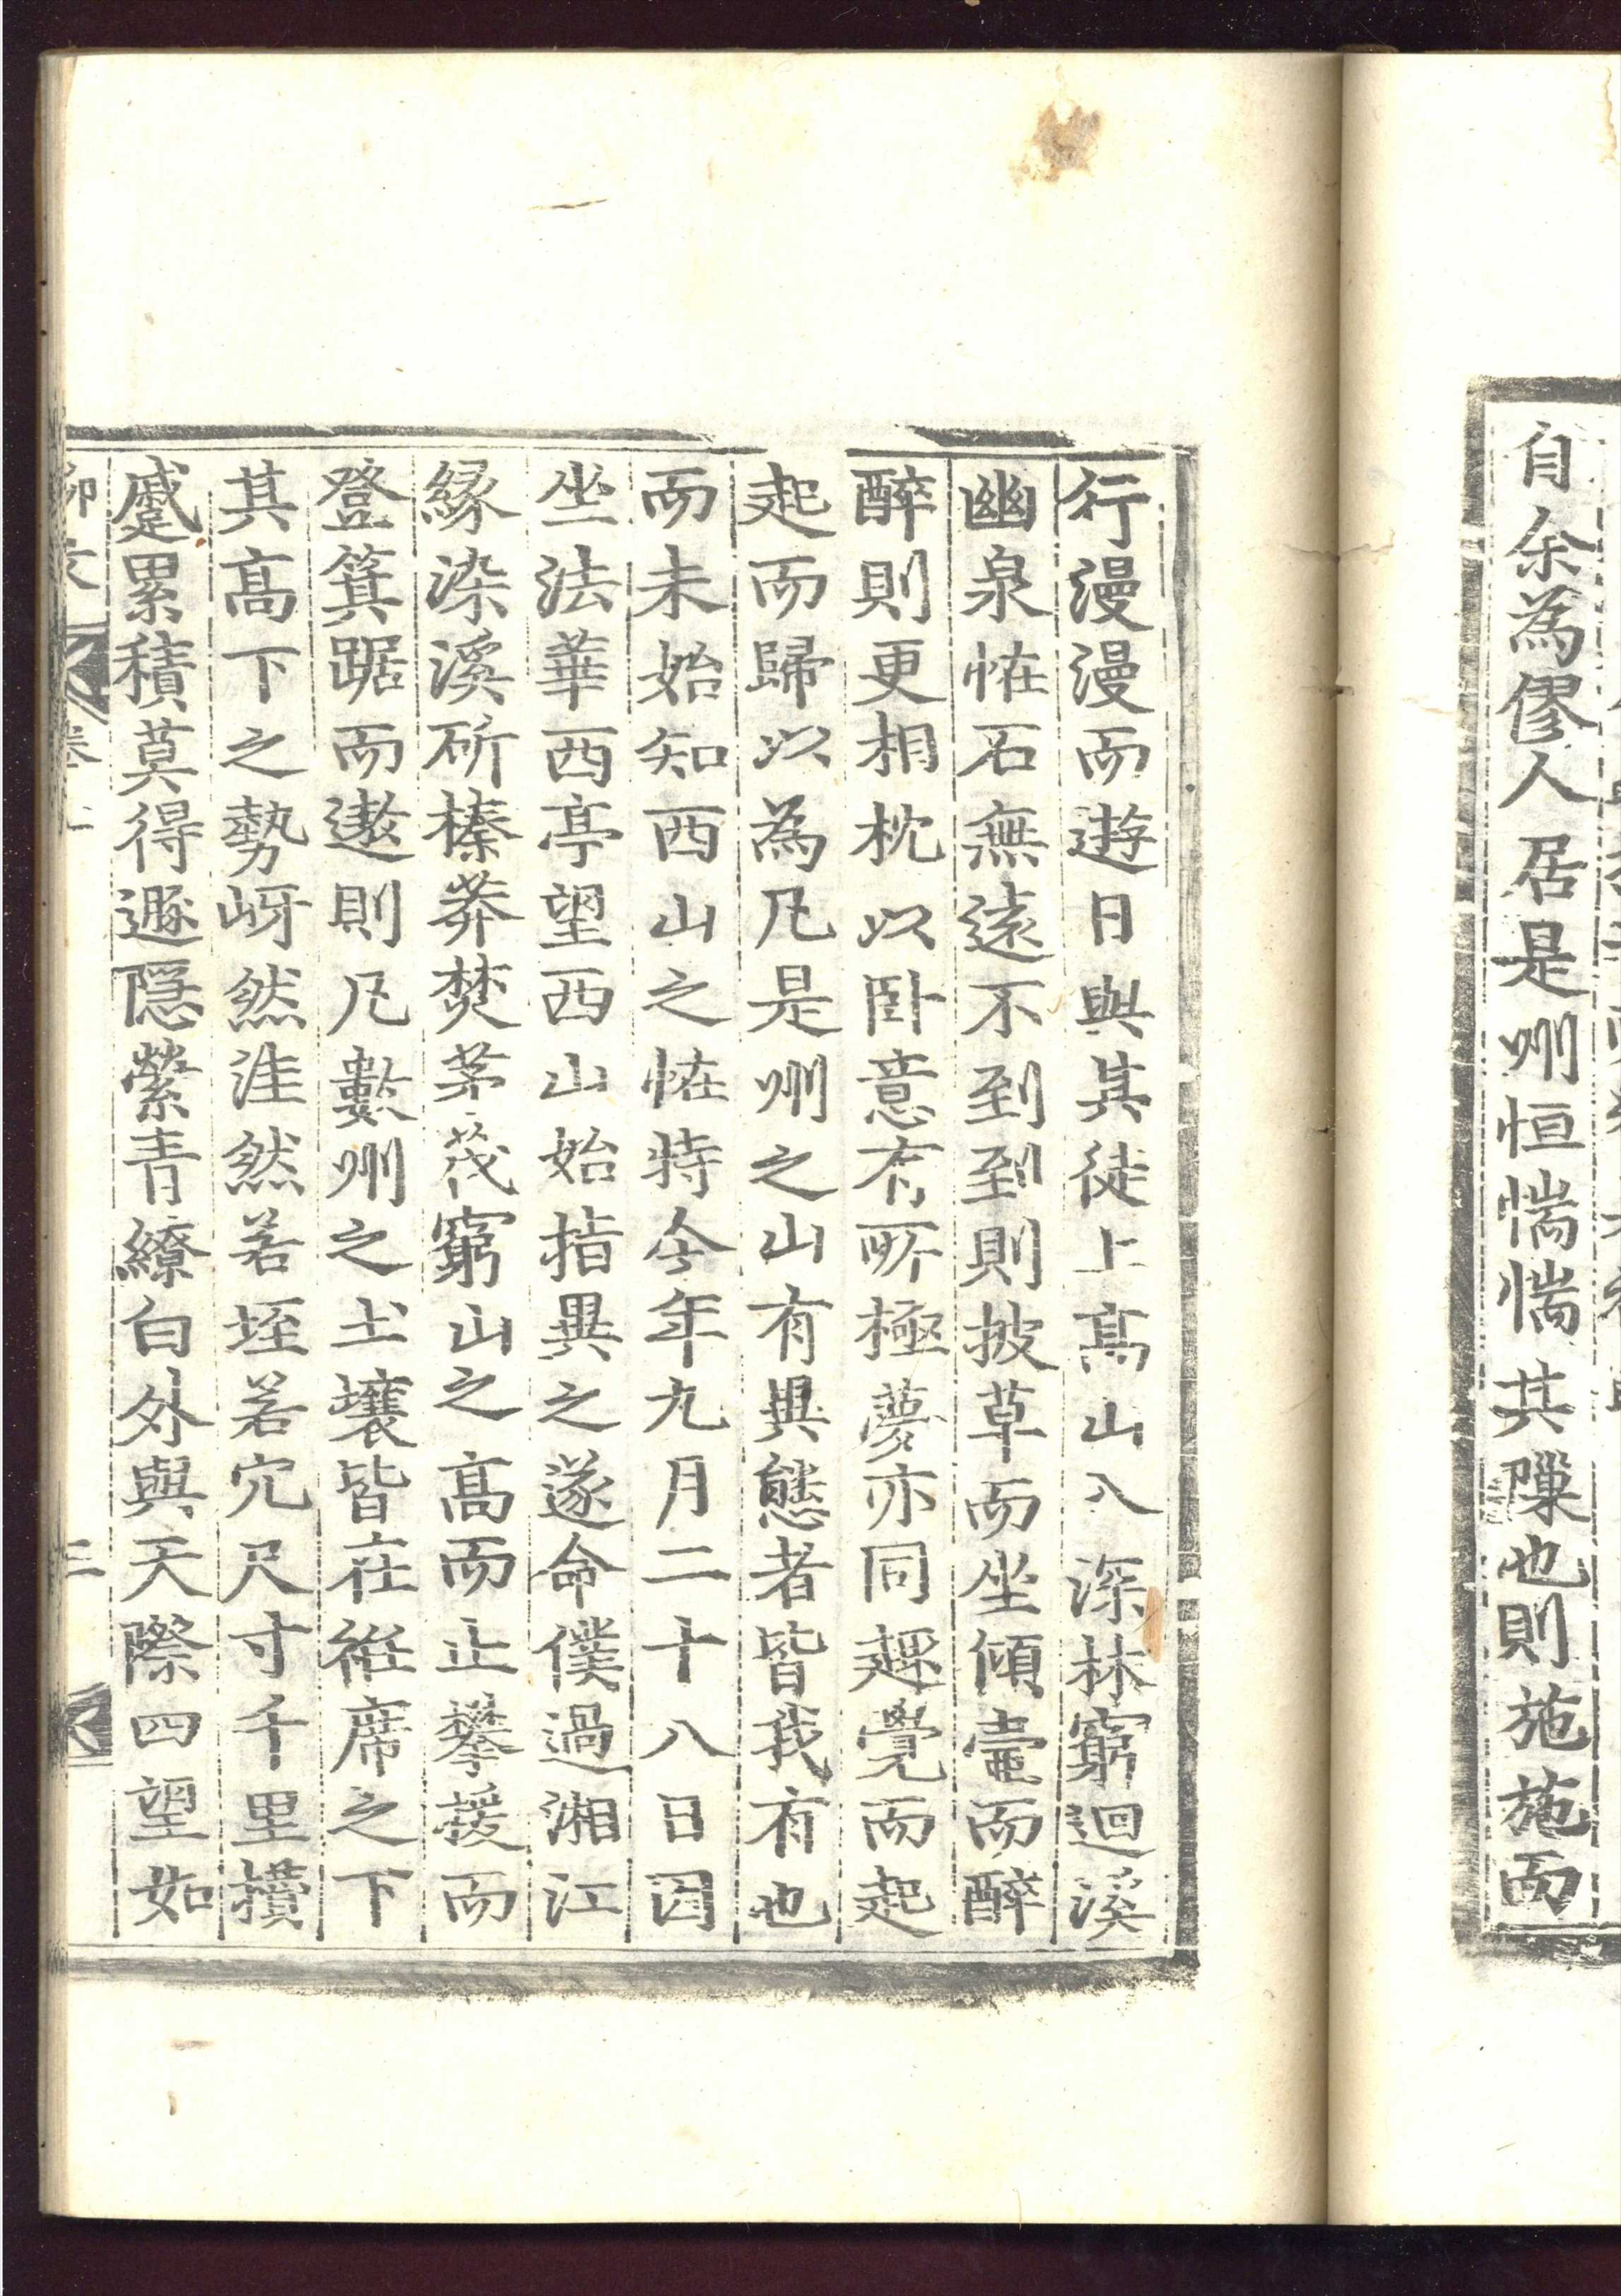 自余為僇人居是州恒惴惴其隟也則施施而
行漫漫而遊日與其徒上高山入深林窮迴溪
幽泉恠石無遠不到到則披草而坐傾壷而醉
醉則更相枕以卧意有所極夢亦同趣覺而起
起而歸以為凡是州之山有異態者皆我有也
而未始知西山之恠特今年九月二十八日因
坐法華西亭望西山始指異之遂命僕過湘江
緣染溪斫榛莽焚茅茷窮山之高而止攀援而
登箕踞而遨則凡數州之土壤皆在衽席之下
其高下之勢岈然洼然若垤若穴尺寸千里攅
蹙累積莫得遯隱縈青繚白外與天際四望如